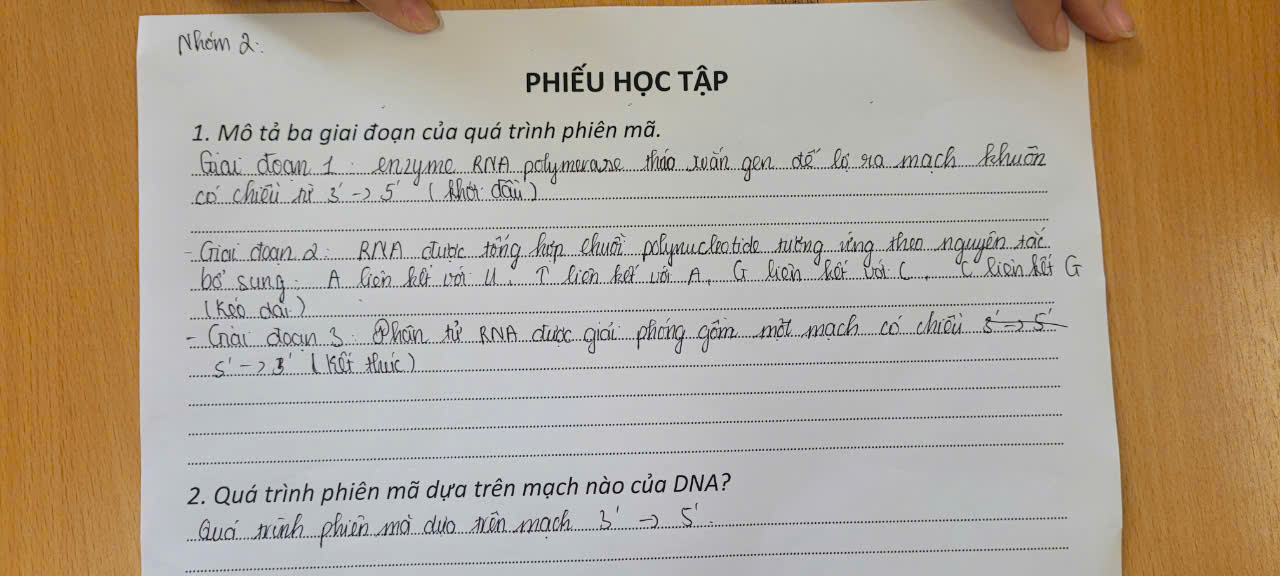 Nhóm 2:
PHIẾU HỌC TẬP
1. Mô tả ba giai đoạn của quá trình phiên mã.
Giai đoạn 1: enzyme RNA polymerase tháo xoắn gen để lộ ra mạch khuôn
có chiều từ 3' -> 5' (khởi đầu)
- Giai đoạn 2: RNA được tổng hợp chuỗi polynucleotide tương ứng theo nguyên tắc
bổ sung: A liên kết với U, T liên kết với A, G liên kết với C, C liên kết G
(kéo dài)
- Giai đoạn 3: Phân tử RNA được giải phóng gồm một mạch có chiều 3' -> 5'
5' -> 3' (kết thúc)
2. Quá trình phiên mã dựa trên mạch nào của DNA?
Quá trình phiên mã dựa trên mạch 3' -> 5'.